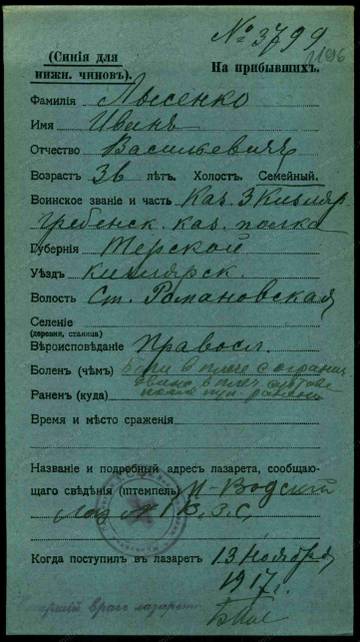 № 3799
1196
(Синія для
нижн. чиновъ).
На прибывшихъ.
Фамилія Лысенко
Имя Иванъ
Отчество Васильевичъ
Возрастъ 36 лѣтъ. Холостъ. Семейный.
Воинское званіе и часть Каз. 3 Кизляр
гребенск. каз. полка
Губернія Терской
Уѣздъ Кизлярск.
Волость Ст. Романовская
Селеніе
(деревня, станица)
Вѣроисповѣданіе Правосл.
Боленъ (чѣмъ) Боли в плече с огранич
Раненъ (куда) после пул. ранени
Время и мѣсто сраженія
Названіе и подробный адресъ лазарета, сообщаю-
щаго свѣдѣнія (штемпель) -Водский
Лаз № 1 В. З. С.
Когда поступилъ въ лазаретъ 13 Ноября
1917 г.
врачъ лазарета